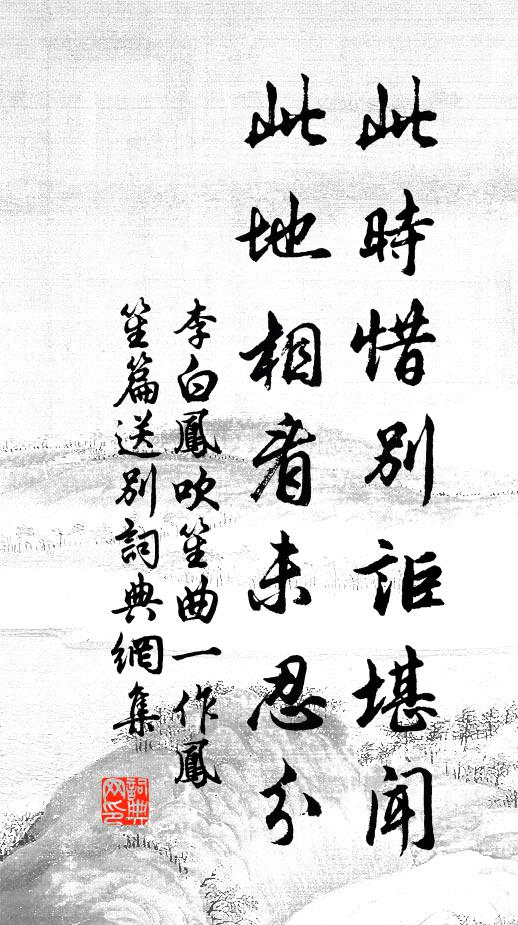 此時惜別詎堪聞
此地相看未忍分
李白鳳吹笙曲一作鳳
笙篇送別詞典網集
詞典
网印